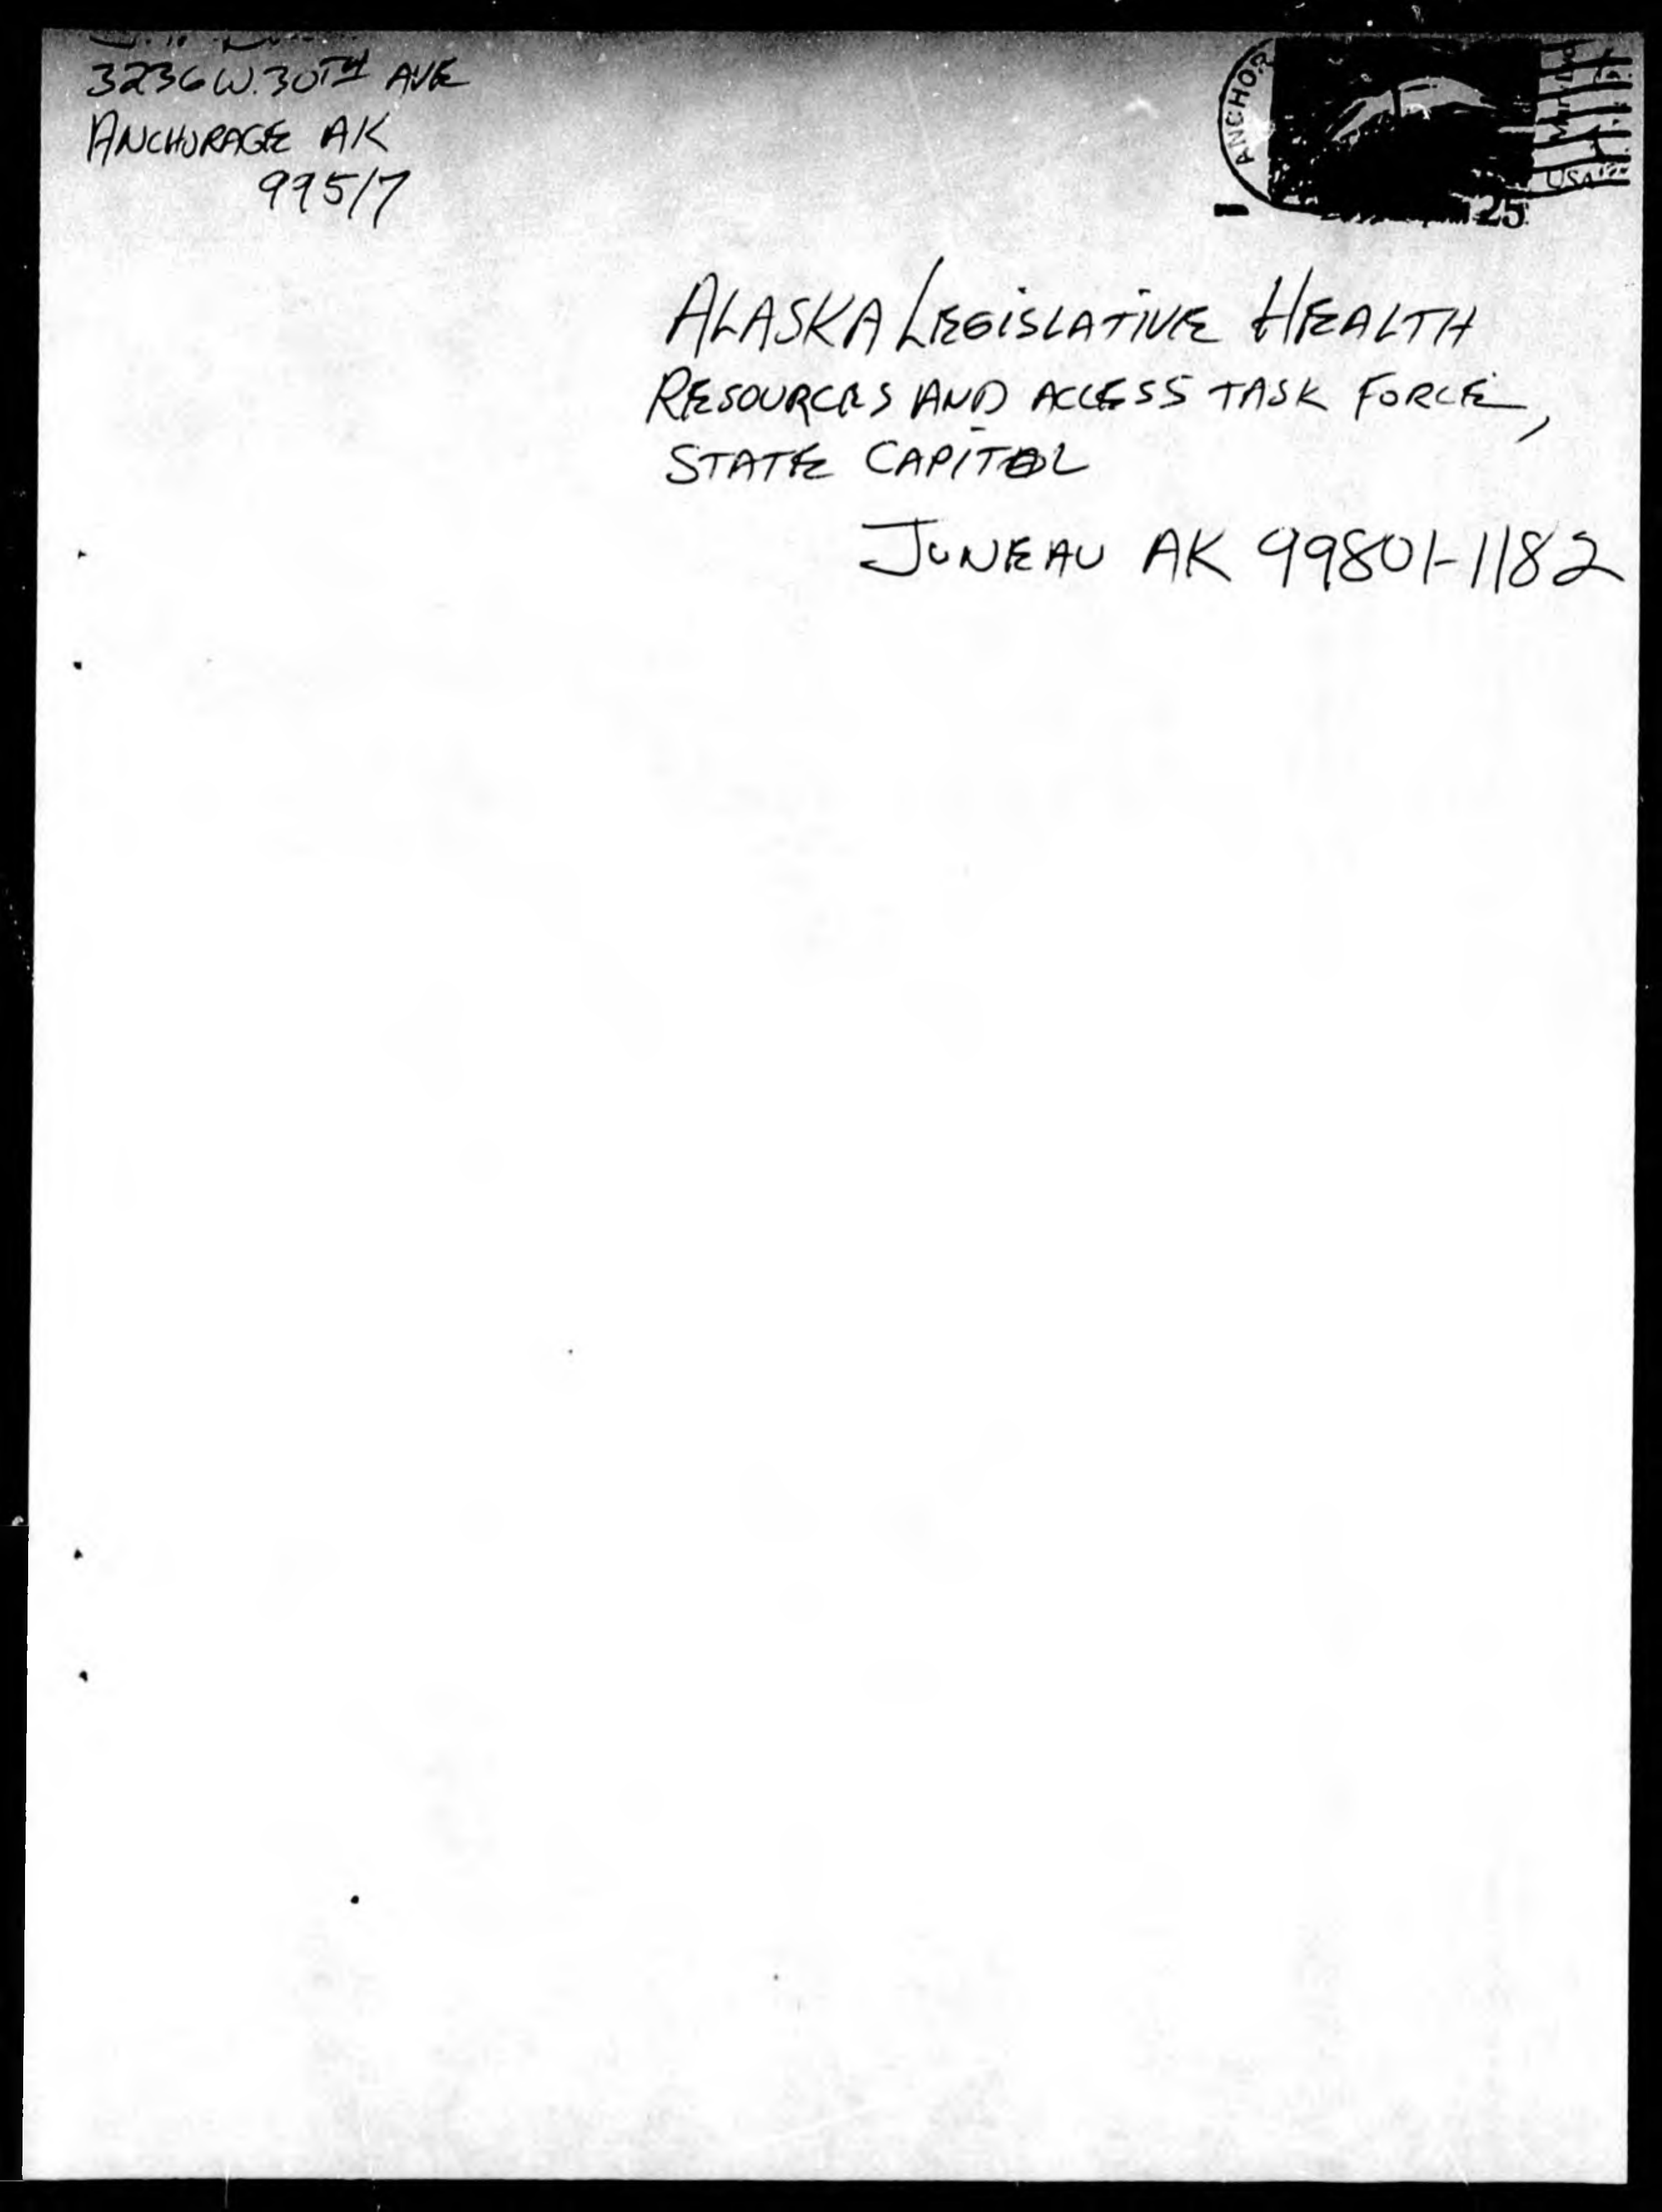 3236 W. 30TH AVE
ANCHORAGE AK
99517
ANCHOR
USA
25
ALASKA LEGISLATIVE HEALTH
RESOURCES AND ACCESS TASK FORCE,
STATE CAPITOL
JUNEAU AK 99801-1182